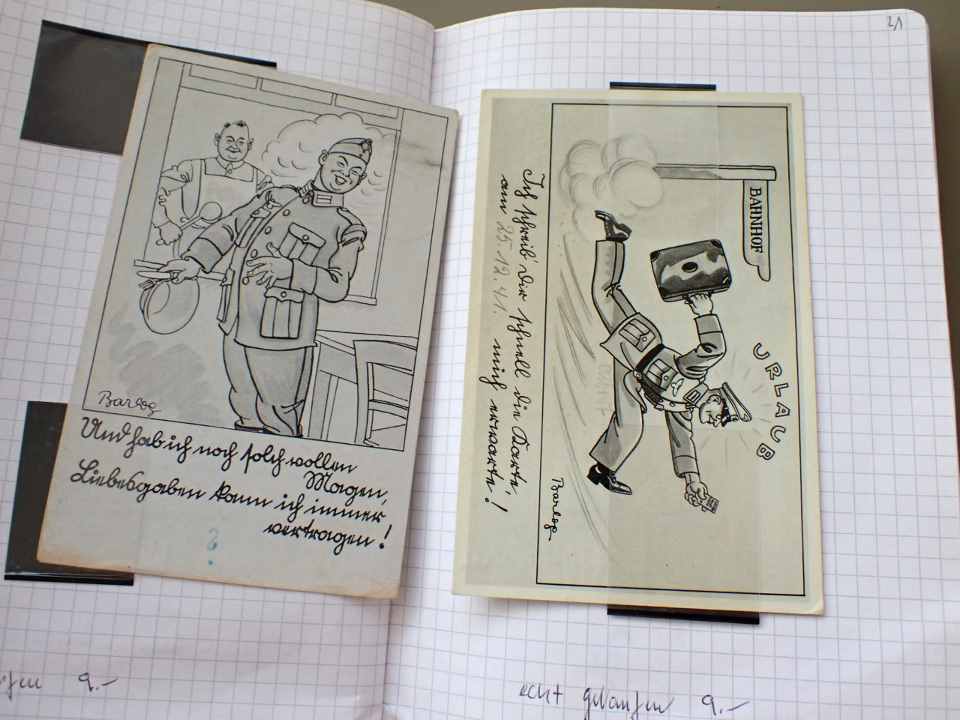 Barlog
Und hab ich noch solch vollen
Magen,
Liebesgaben kann ich immer
vertragen!
?
9.-
21
BAHNHOF
URLAUB
Ich schreib Dir schnell die Karte,
am 25.12.41. mich erwarte!
Barlog
echt gelaufen 9.-